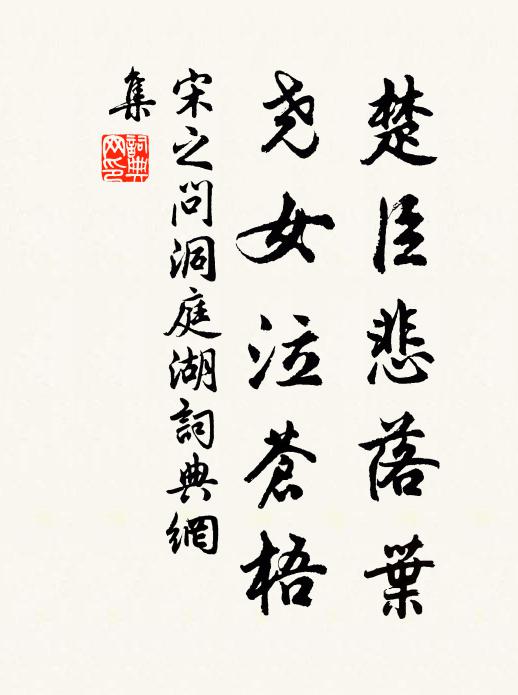 楚臣悲落葉
尧女泣蒼梧
宋之问洞庭湖詞典網
集
詞典
网印